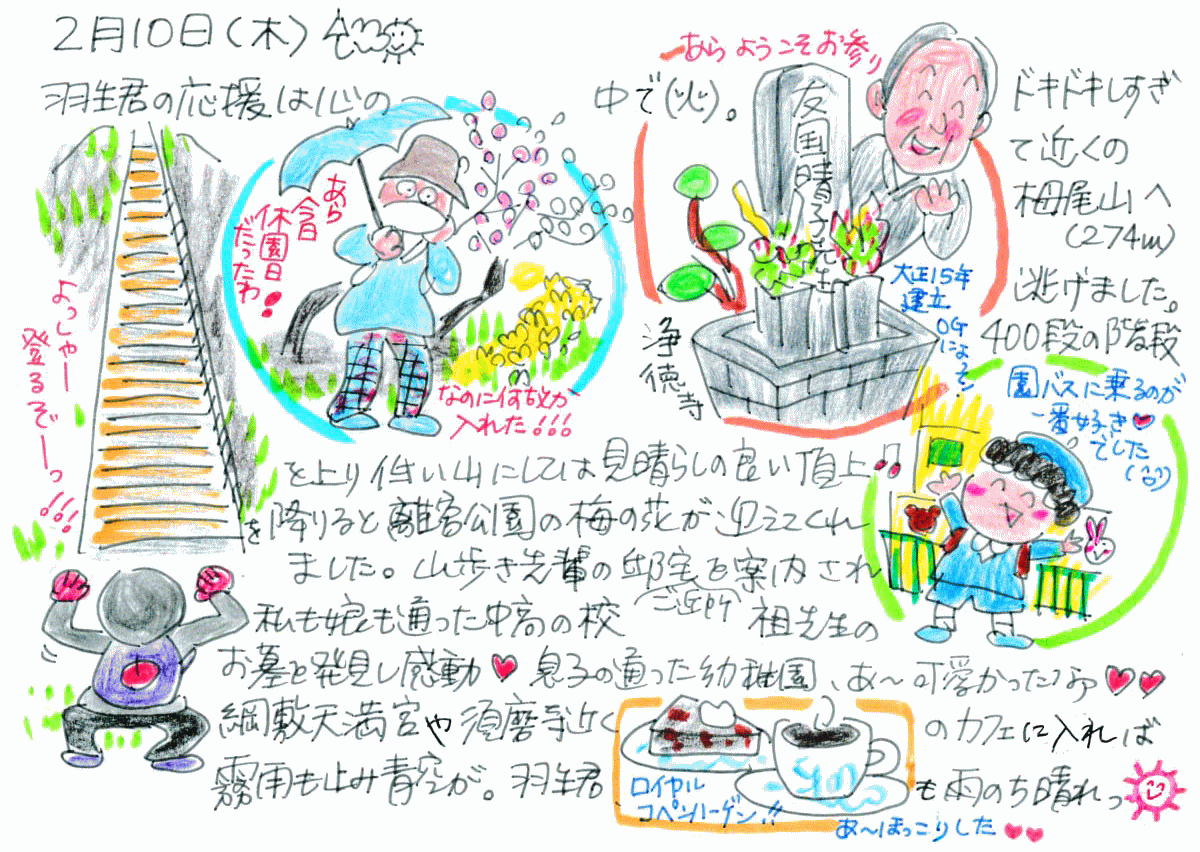 2月10日(木)
羽生君の応援は心の中で(火)。ドキドキしすぎ
て近くの
栂尾山へ
(274m)
逃げました。
400段の階段
を上り低い山にしては見晴らしの良い頂上♪
を降りると離宮公園の梅の花が迎えてくれ
ました。山歩き先輩の邸宅を案内され
ご近所
私も娘も通った中高の校祖先生の
お墓を発見し感動♥息子の通った幼稚園、あ〜可愛かったなァ♥♥
綱敷天満宮や須磨寺近くのカフェに入れば
霧雨も止み青空が。羽生君も雨のち晴れっ
よっしゃー
登るぞーっ!!!
あら
今日
休園日
だったわ!
なのに何故か
入れた!!!
あらようこそお参り
友国晴子先生
大正15年
建立
OGによる
浄徳寺
園バスに乗るのが
一番好き♥
でした
ロイヤル
コペンハーゲン!!
あ〜ほっこりした♥♥